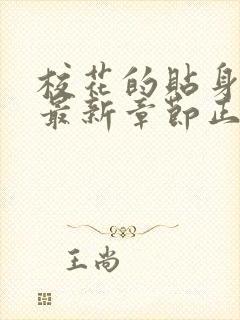 校花的贴身
最新章节正
王尚